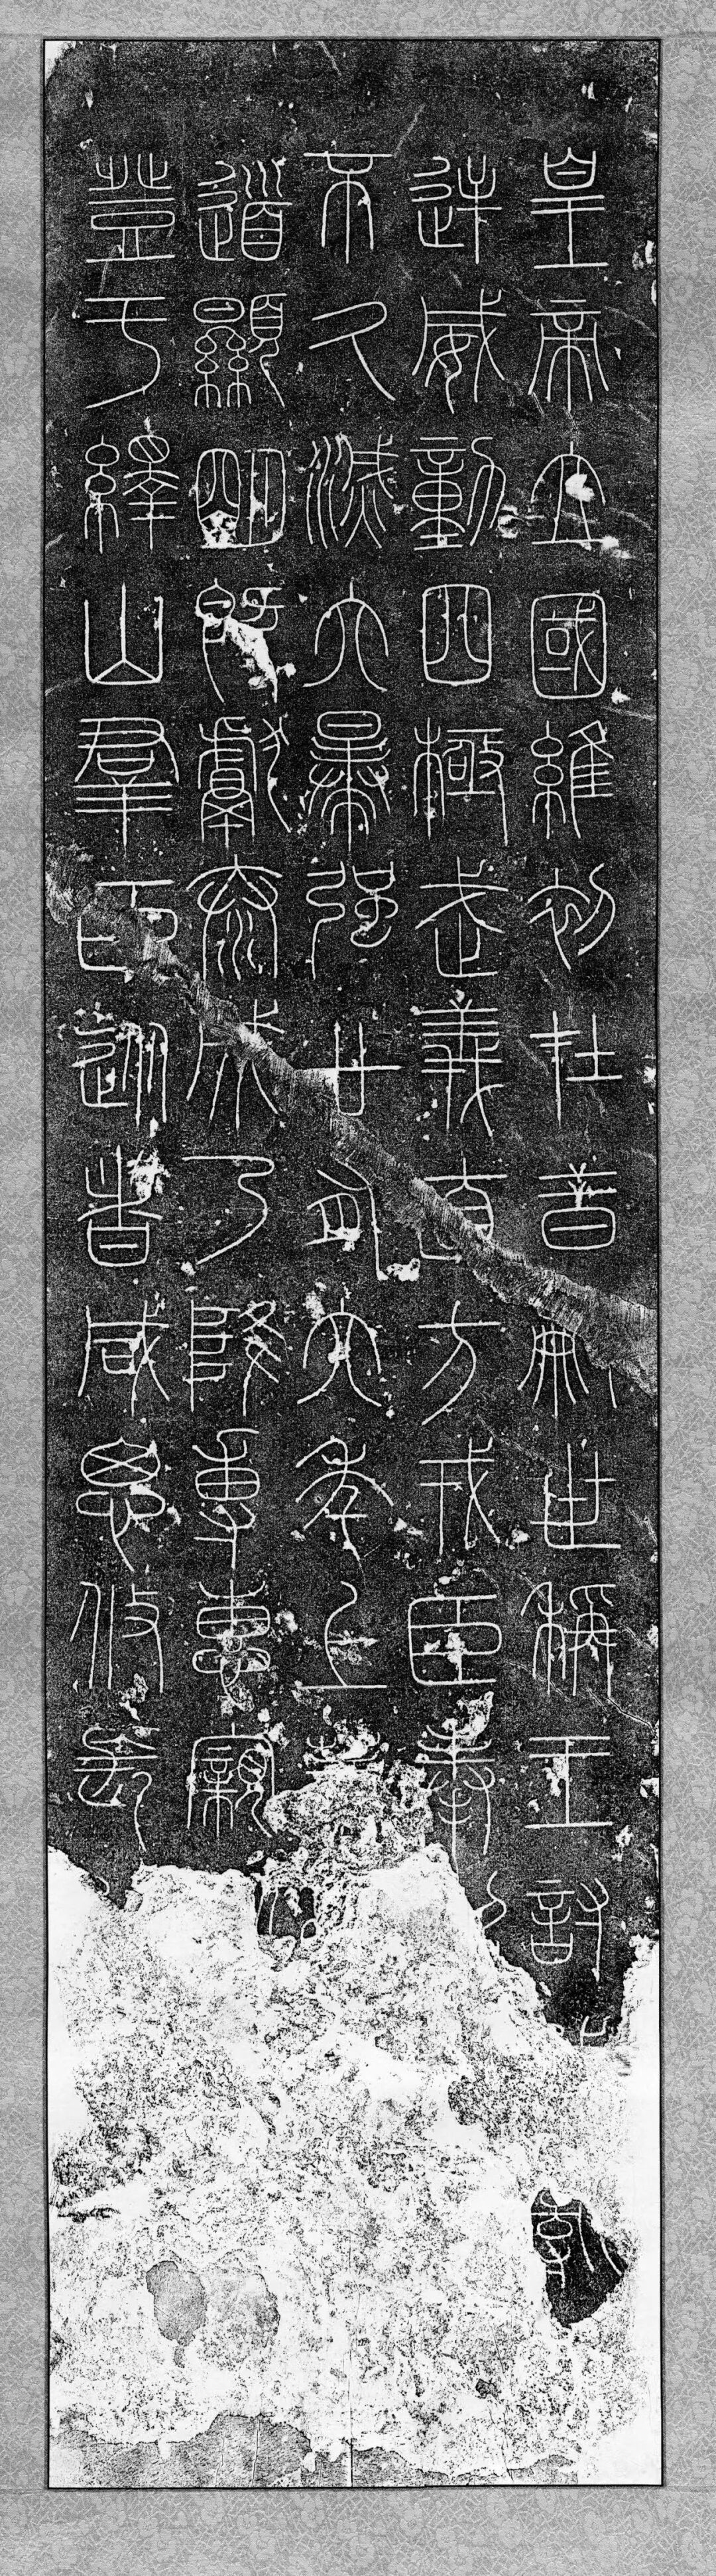 皇帝立國維初在昔嗣世稱王討亂
逆威動四極武義直方戎臣奉
不久滅六暴強廿有六年上薦
道顯明既獻泰成乃降專惠親
登于繹山羣臣從者咸思攸長